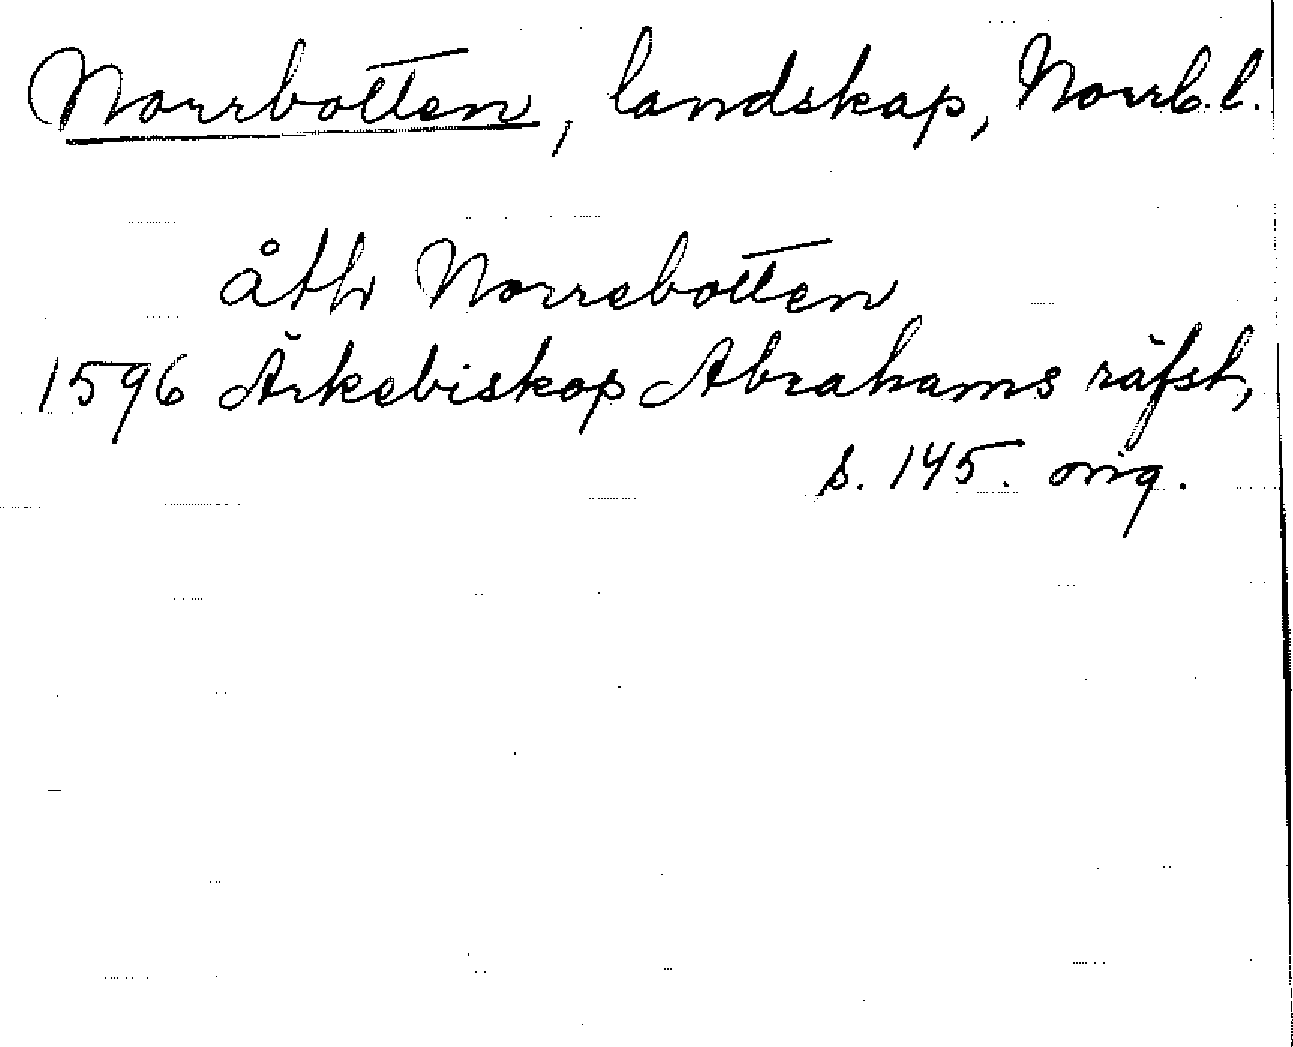 Norrbotten, landskap, Norrb.l.
åth Norrebotten
1596 Ärkebiskop Abrahams räfst,
s. 145. orig.